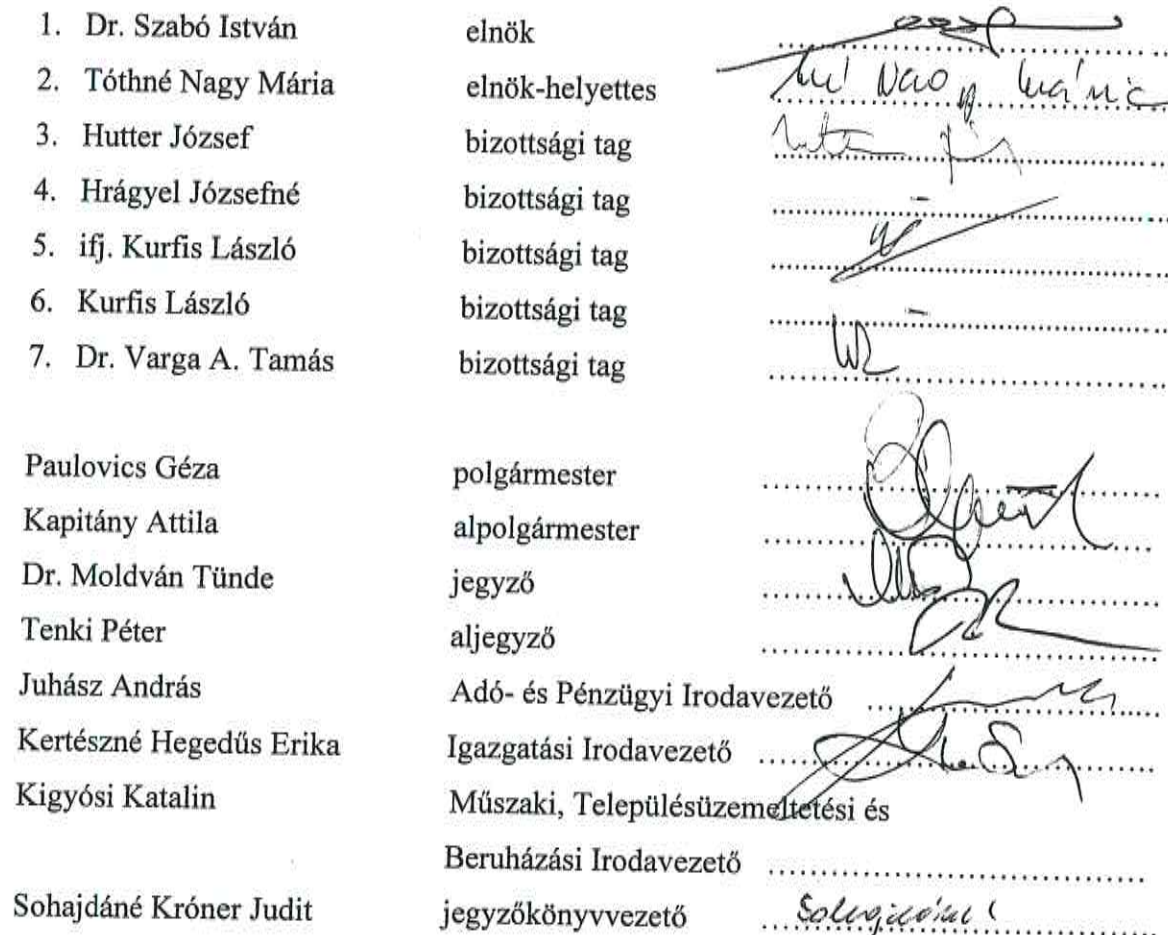 1. Dr. Szabó István elnök
2. Tóthné Nagy Mária elnök-helyettes
3. Hutter József bizottsági tag
4. Hrágyel Józsefné bizottsági tag
5. ifj. Kurfis László bizottsági tag
6. Kurfis László bizottsági tag
7. Dr. Varga A. Tamás bizottsági tag
Paulovics Géza polgármester
Kapitány Attila alpolgármester
Dr. Moldván Tünde jegyző
Tenki Péter aljegyző
Juhász András Adó- és Pénzügyi Irodavezető
Kertészné Hegedűs Erika Igazgatási Irodavezető
Kigyósi Katalin Műszaki, Településüzemeltetési és
Beruházási Irodavezető
Sohajdáné Króner Judit jegyzőkönyvvezető